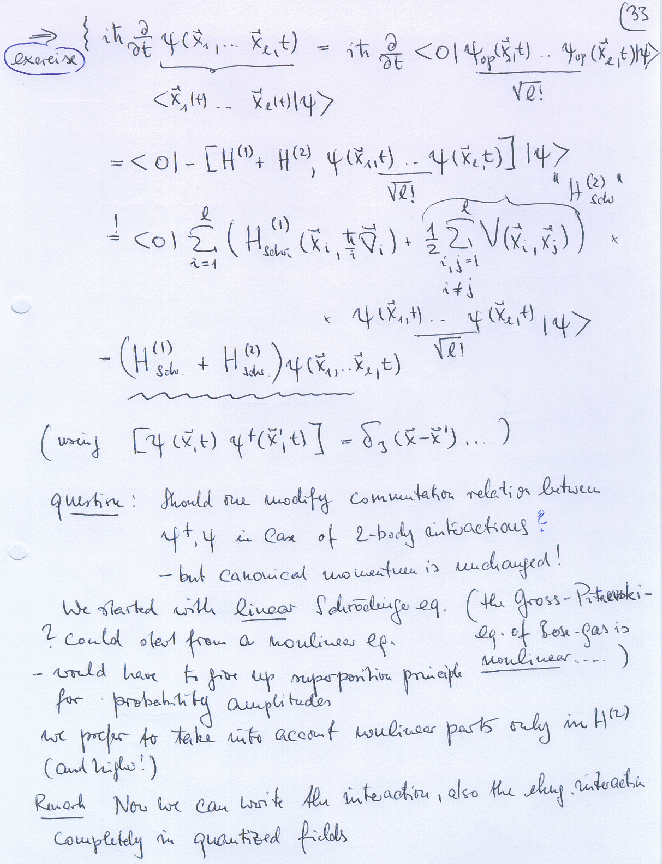 (33
⇒ { iħ ∂/∂t ψ(x⃗₁,... x⃗_ℓ,t) = iħ ∂/∂t <0| ψ_op(x⃗,t) .. ψ_op(x⃗_ℓ,t)/√ℓ! |ψ>
exercise
<x⃗₁(t) .. x⃗_ℓ(t)|ψ>
= <0| - [H⁽¹⁾ + H⁽²⁾, ψ(x⃗₁,t) .. ψ(x⃗_ℓ,t)/√ℓ! ] |ψ>
"H⁽²⁾_Schr"
=! <0| Σ_{i=1}^{ℓ} ( H⁽¹⁾_Schr. (x⃗_i, ħ/i ∇⃗_i) + 1/2 Σ_{i,j=1, i≠j}^{ℓ} V(x⃗_i, x⃗_j) ) ×
× ψ(x⃗₁,t) .. ψ(x⃗_ℓ,t)/√ℓ! |ψ>
- (H⁽¹⁾_Schr. + H⁽²⁾_Schr.) ψ(x⃗₁,.. x⃗_ℓ,t)
(using [ψ(x⃗,t) ψ⁺(x⃗',t)] = δ₃(x⃗-x⃗') ... )
question: Should one modify commutation relation between
ψ⁺, ψ in case of 2-body interactions?
- but canonical momentum is unchanged!
We started with linear Schrödinger eq. (the Gross-Pitaevski-
? could start from a nonlinear eq. eq. of Bose-gas is
- would have to give up superposition principle nonlinear....)
for probability amplitudes
we prefer to take into account nonlinear parts only in H⁽²⁾
(and higher!)
Remark Now we can write the interaction, also the elmg. interaction
completely in quantized fields